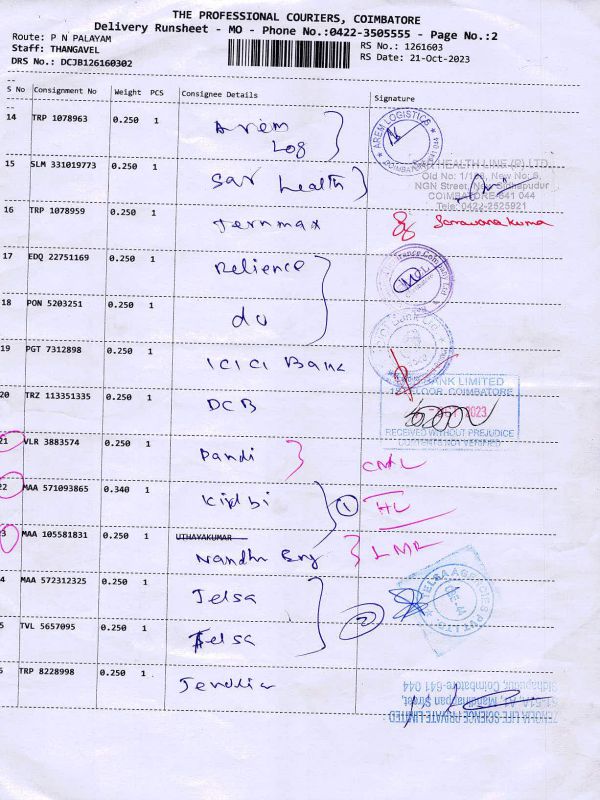 THE PROFESSIONAL COURIERS, COIMBATORE
Delivery Runsheet - MO - Phone No.:0422-3505555 - Page No.:2
Route: P N PALAYAM
Staff: THANGAVEL
DRS No.: DCJB126160302
RS No.: 1261603
RS Date: 21-Oct-2023
S No Consignment No Weight PCS Consignee Details Signature
14 TRP 1078963 0.250 1 Arem Log
AREM LOGISTICS
15 SLM 331019773 0.250 1 Sav health
HEALTH LINE (P) LTD
Old No: 1/1 New No: 6,
NGN Street, New Sidhapudur
COIMBATORE-641 044
Tele: 0422-2525921
16 TRP 1078959 0.250 1
17 EDQ 22751169 0.250 1 Relience
18 PON 5203251 0.250 1 do
19 PGT 7312898 0.250 1 ICICI Bank
20 TRZ 113351335 0.250 1 DCB
BANK LIMITED
FLOOR, COIMBATORE
2023
RECEIVED WITHOUT PREJUDICE
CONTENTS NOT VERIFIED
21 VLR 3883574 0.250 1 Pandi
22 MAA 571093865 0.340 1 1
23 MAA 105581831 0.250 1 UTHAYAKUMAR
Nandhi
4 MAA 572312325 0.250 1 Jelsa
5 TVL 5657095 0.250 1 Jelsa 2
TELSA AGENCIES PVT LTD
CBE-44
6 TRP 8228998 0.250 1
LIFE SCIENCE PRIVATE LIMITED
Sidhapudur, Coimbatore-641 044